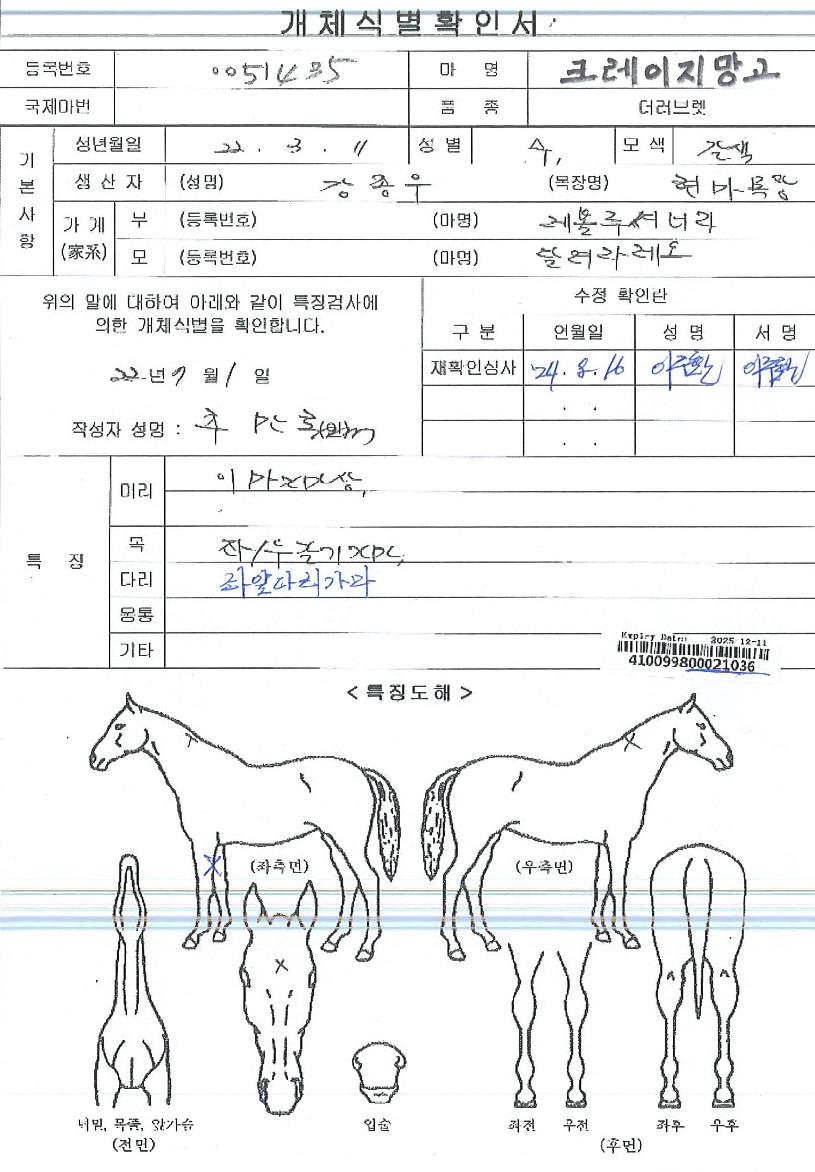 개체식별확인서
등록번호 0051435 마 명 크레이지망고
국제마번 품 종 더러브렛
기본사항
성년월일 22. 3. 11 성별 수, 모색 갈색
생산자 (성명) 강종우 (목장명) 현마목장
가계 (家系)
부 (등록번호) (마명) 레볼루셔너리
모 (등록번호) (마명) 달려라레오
위의 말에 대하여 아래와 같이 특징검사에
의한 개체식별을 확인합니다.
22년 9월 1일
작성자 성명 :
수정 확인란
구분 연월일 성명 서명
재확인심사 '24. 8. 16
. .
. .
특 징
머리
목
다리 좌앞다리가마
몽통
기타
Expiry Date: 2025-12-11
410099800021036
<특징도해>
(좌측면) (우측면)
너밑, 목쪽, 앞가슴
(전면)
입술
좌전 우전 좌후 우후
(후면)